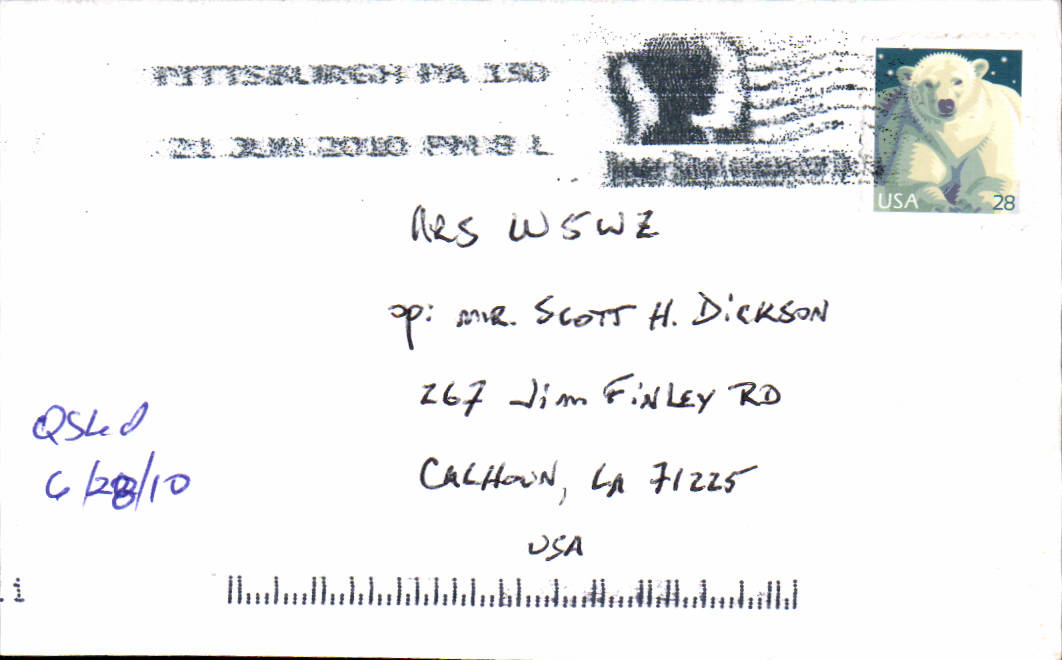 PITTSBURGH PA 150
21 JUN 2010 PM 8 L
USA 28
ARS W5WZ
op: MR. SCOTT H. DICKSON
267 Jim FiNLEY RD
CALHOUN, LA 71225
USA
QSLd
6/28/10